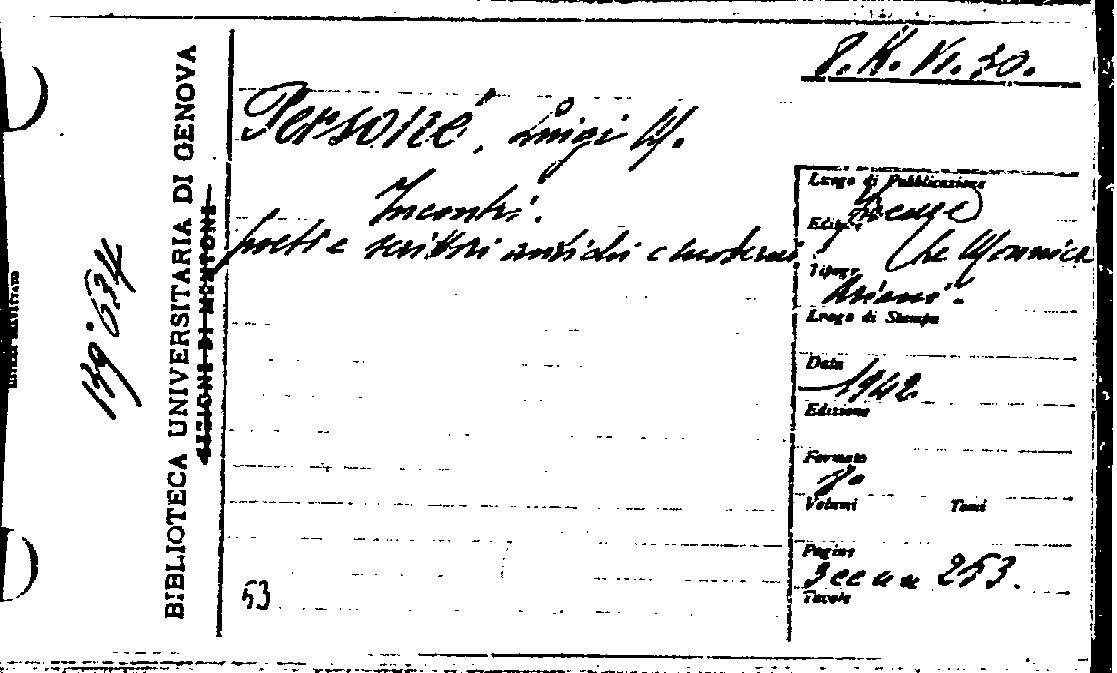 8.K.VI.30.
Personé, Luigi M.
Incontri.
poeti e scrittori antichi e moderni
Luogo di Pubblicazione
Firenze
Editore
Le Monnier
Tipogr.
Ariani.
Luogo di Stampa
Data
1942
Edizione
Formato
8°
Volumi Tomi
Pagine
3 cc n n 253.
Tavole
53
BIBLIOTECA UNIVERSITARIA DI GENOVA
149634